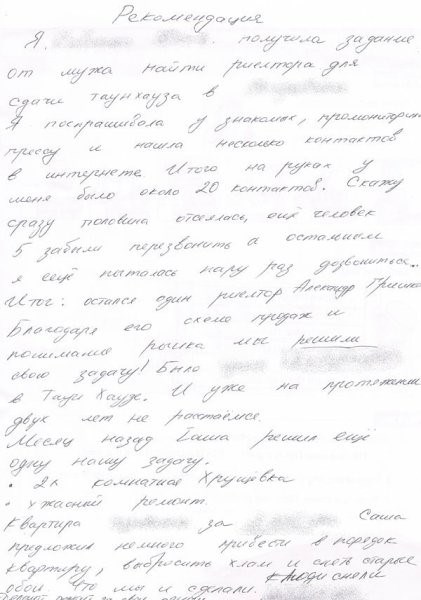 Рекомендация
Я получила задание
от мужа найти риелтора для
сдачи таунхауза в
Я поспрашивала у знакомых, промониторила
прессу и нашла несколько контактов
в интернете. Итого на руках у
меня было около 20 контактов. Скажу
сразу половина отсеялась, ещё человек
5 забыли перезвонить а остальным
я ещё пыталась пару раз дозвониться..
Итог: остался один риелтор Александр
Благодаря его схеме продаж и
понимание рынка мы решили
свою задачу! Было
в Таун Хаузе. И уже на протяжении
двух лет не расстаемся.
Месяц назад Саша решил ещё
одну нашу задачу.
• 2х комнатная Хрущевка
• ужасный ремонт.
Квартира за Саша
предложил немного привести в порядок
квартиру, выбросить хлам и снять старые
обои. Что мы и сделали.